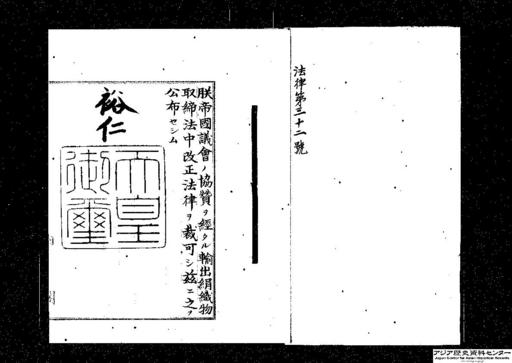 法律第三十二號
朕帝國議會ノ協贊ヲ經タル輸出絹織物
取締法中改正法律ヲ裁可シ茲ニ之ヲ
公布セシム
裕仁
天皇
御璽
アジア歴史資料センター
Japan Center for Asian Historical Records